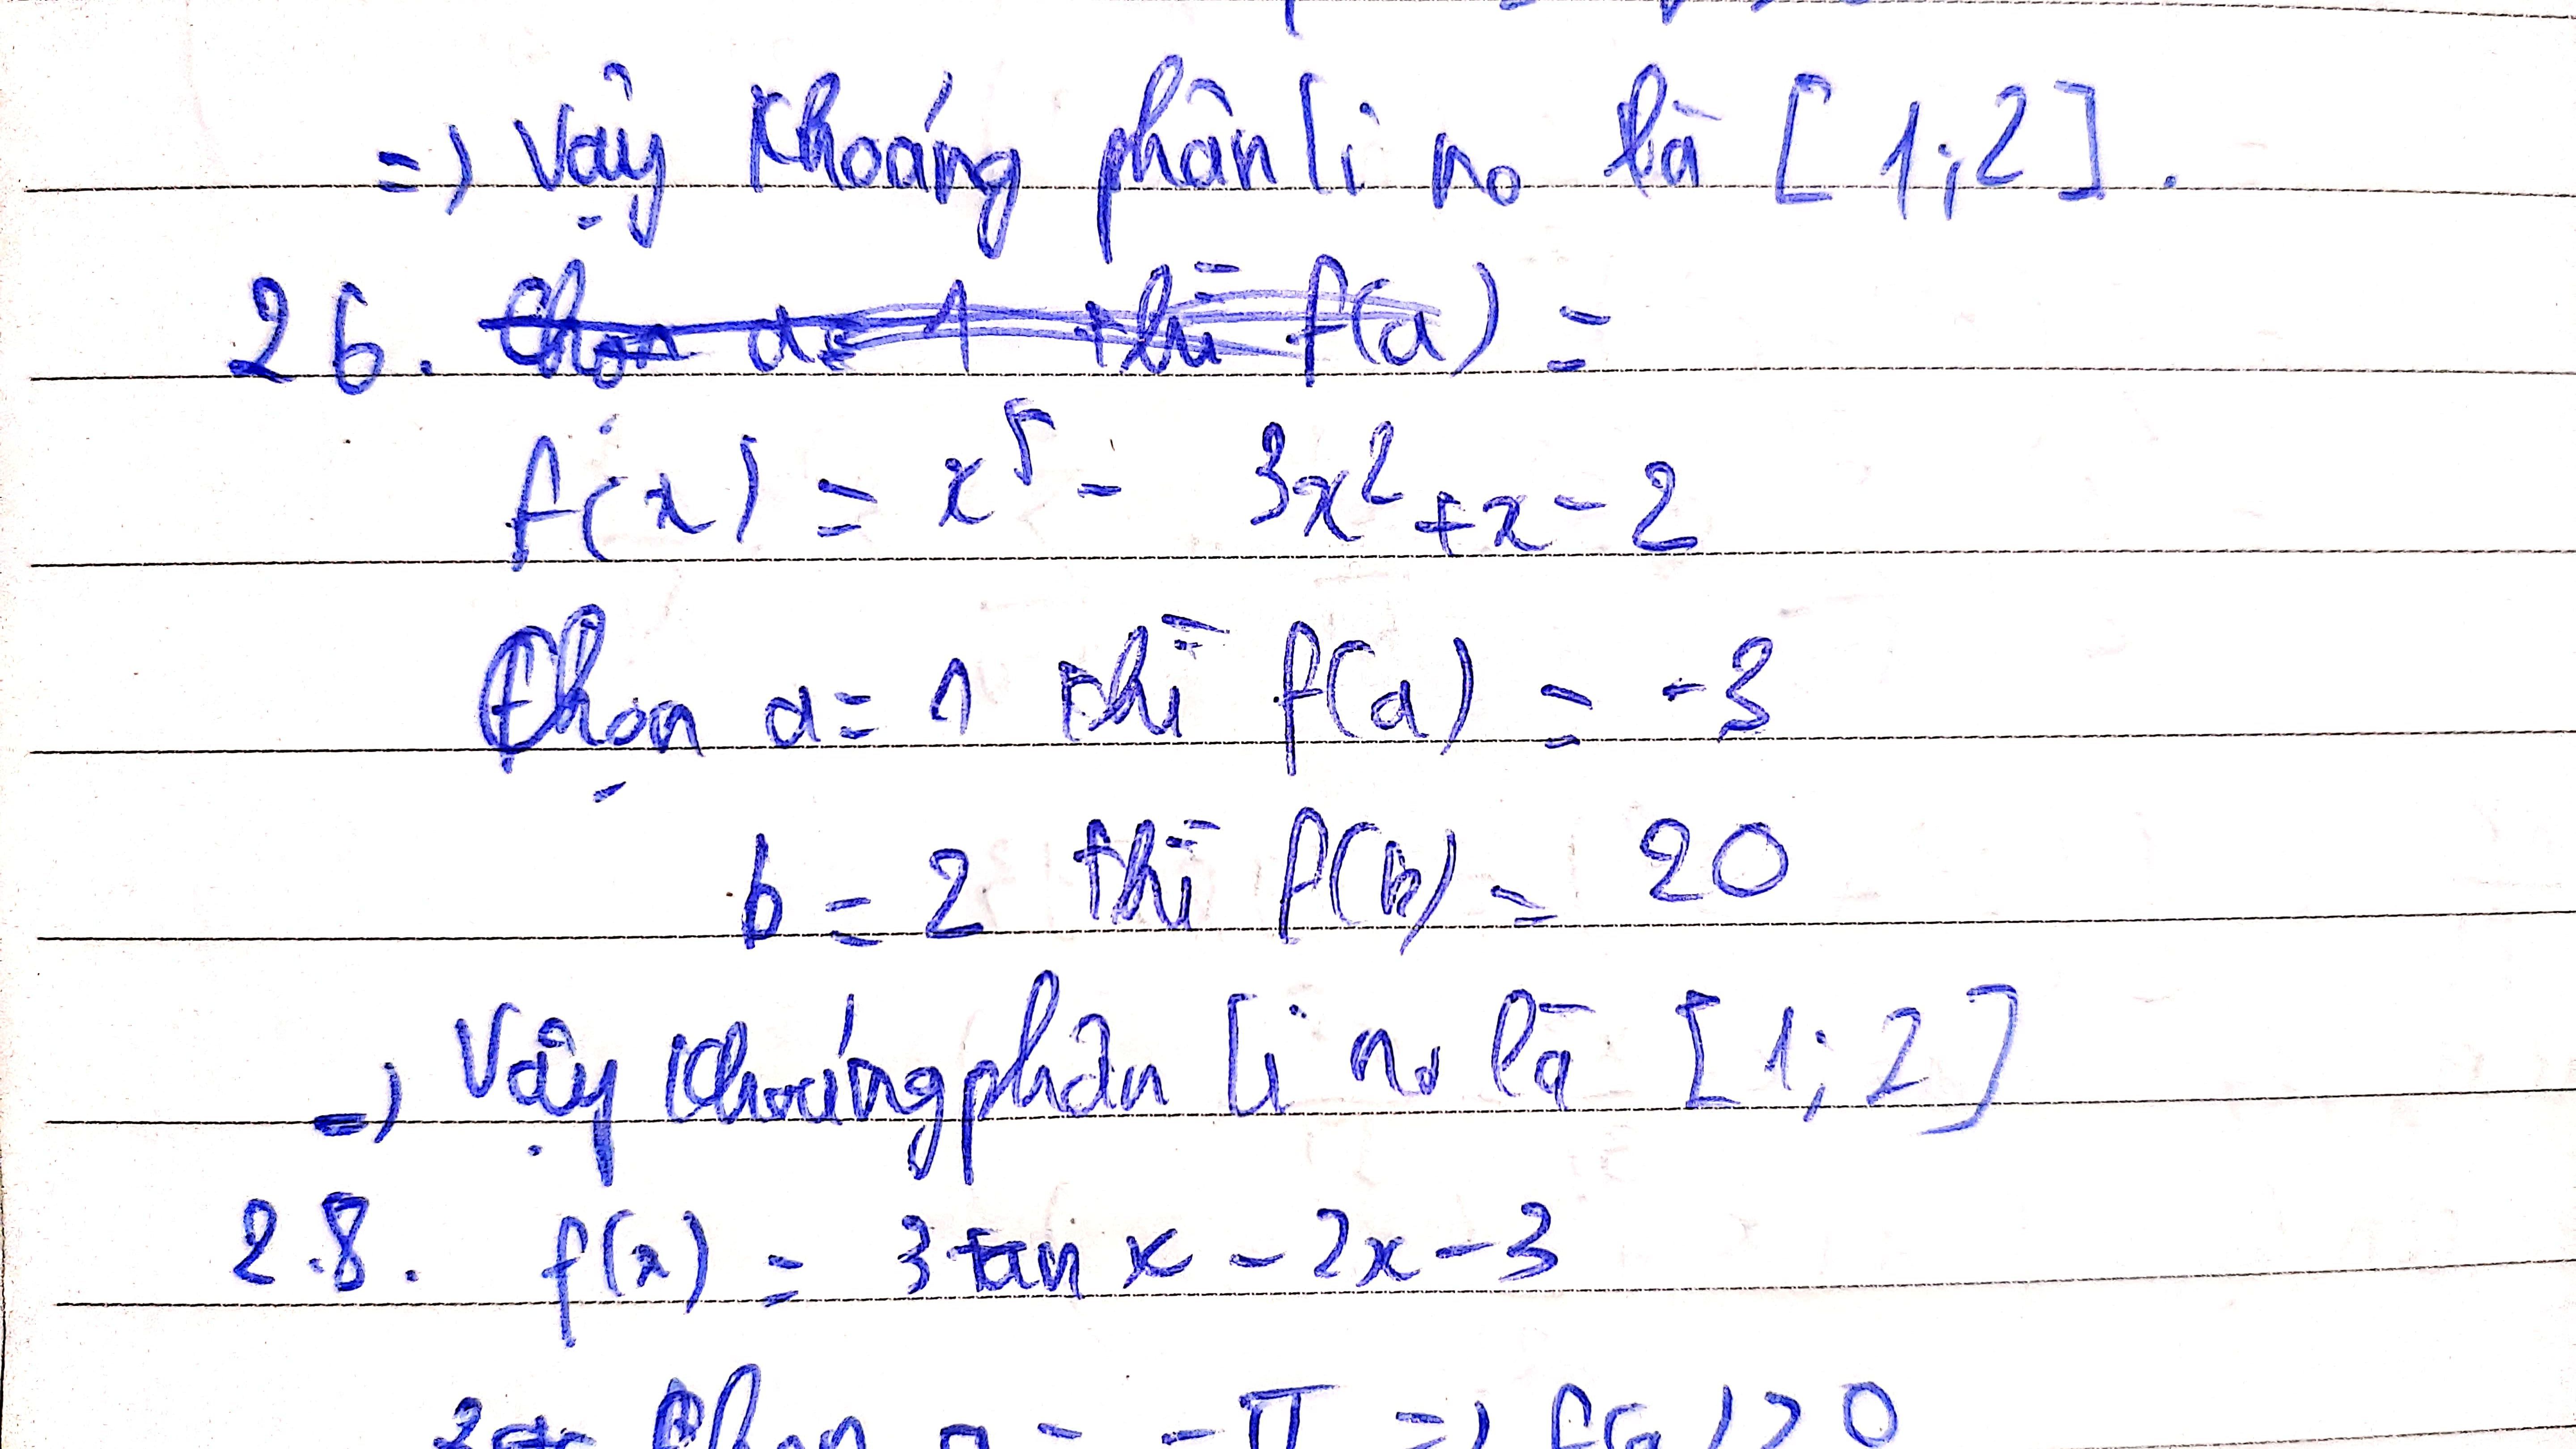 => Vậy khoảng phân li no là [1;2].
26. Chọn a = 1 thì f(a) =
f(x) = x⁵ - 3x² + x - 2
Chọn a = 1 thì f(a) = -3
b = 2 thì f(b) = 20
=> Vậy khoảng phân li no là [1;2]
2.8. f(x) = 3tan x - 2x - 3
Chọn a = -π => f(a) > 0